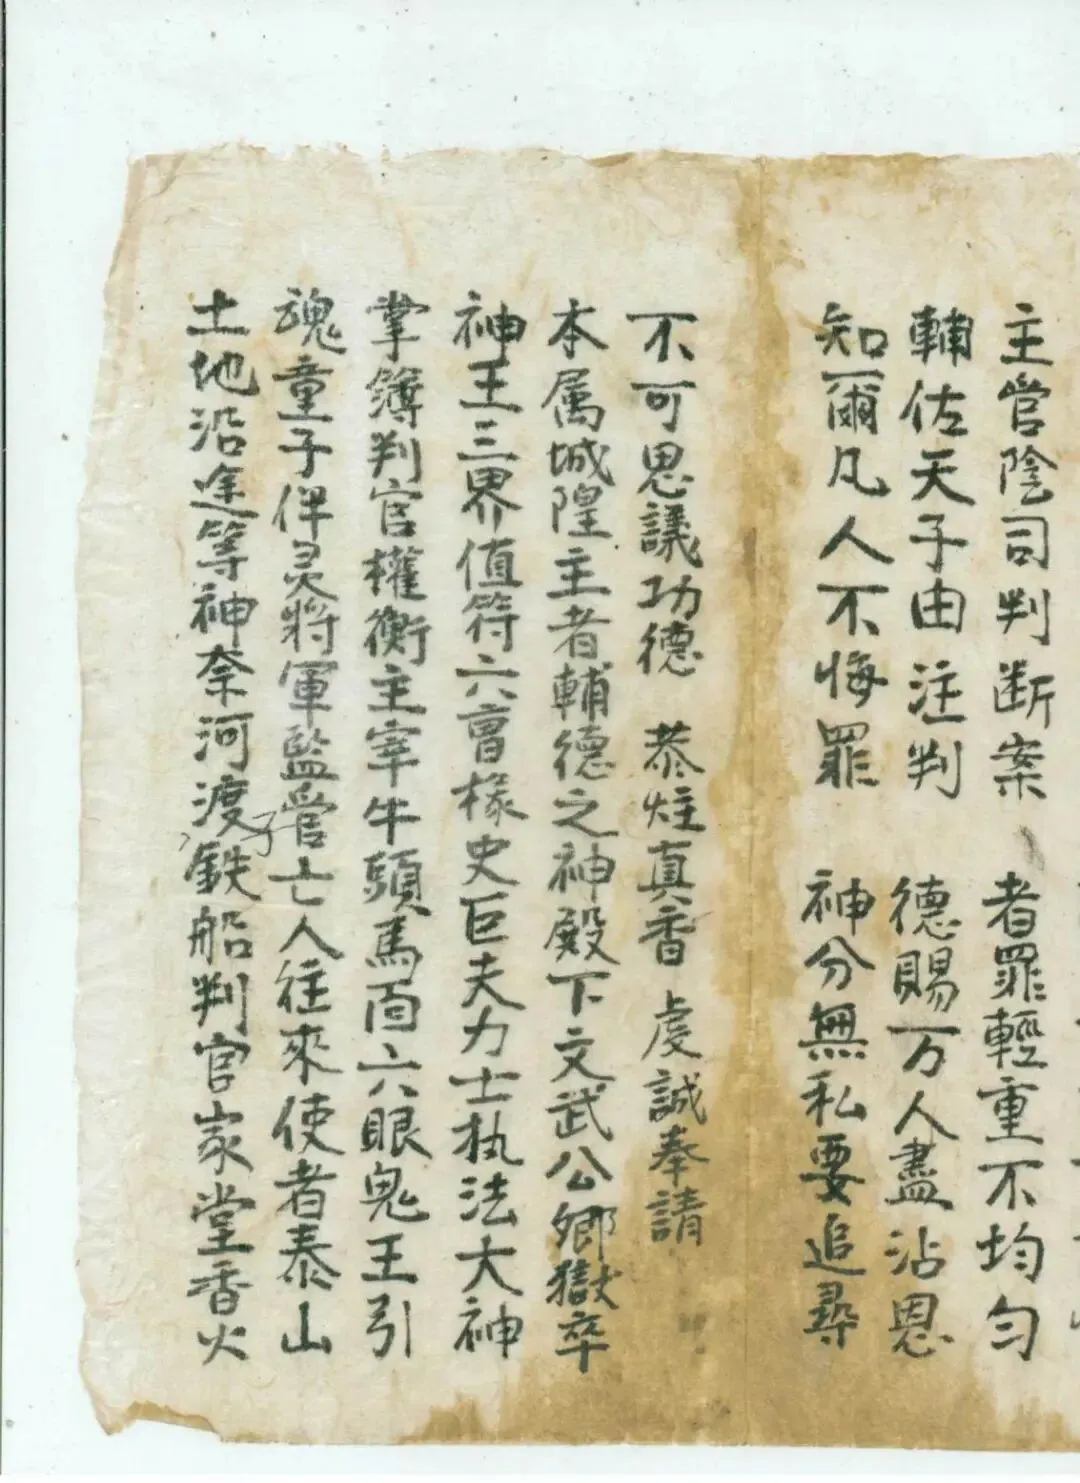 主官陰司判断案 者罪輕重不均匀
輔佐天子由注判 德賜万人盡沾恩
知爾凡人不悔罪 神分無私要追尋
不可思議功德 恭炷真香 虔誠奉請
本属城隍主者輔德之神殿下文武公卿獄卒
神王三界值符六曺椽史巨夫力士执法大神
掌簿判官權衡主宰牛頭馬面六眼鬼王引
魂童子伴灵將軍監官亡人往來使者泰山
土地沿途等神奈河渡子鉄船判官家堂香火